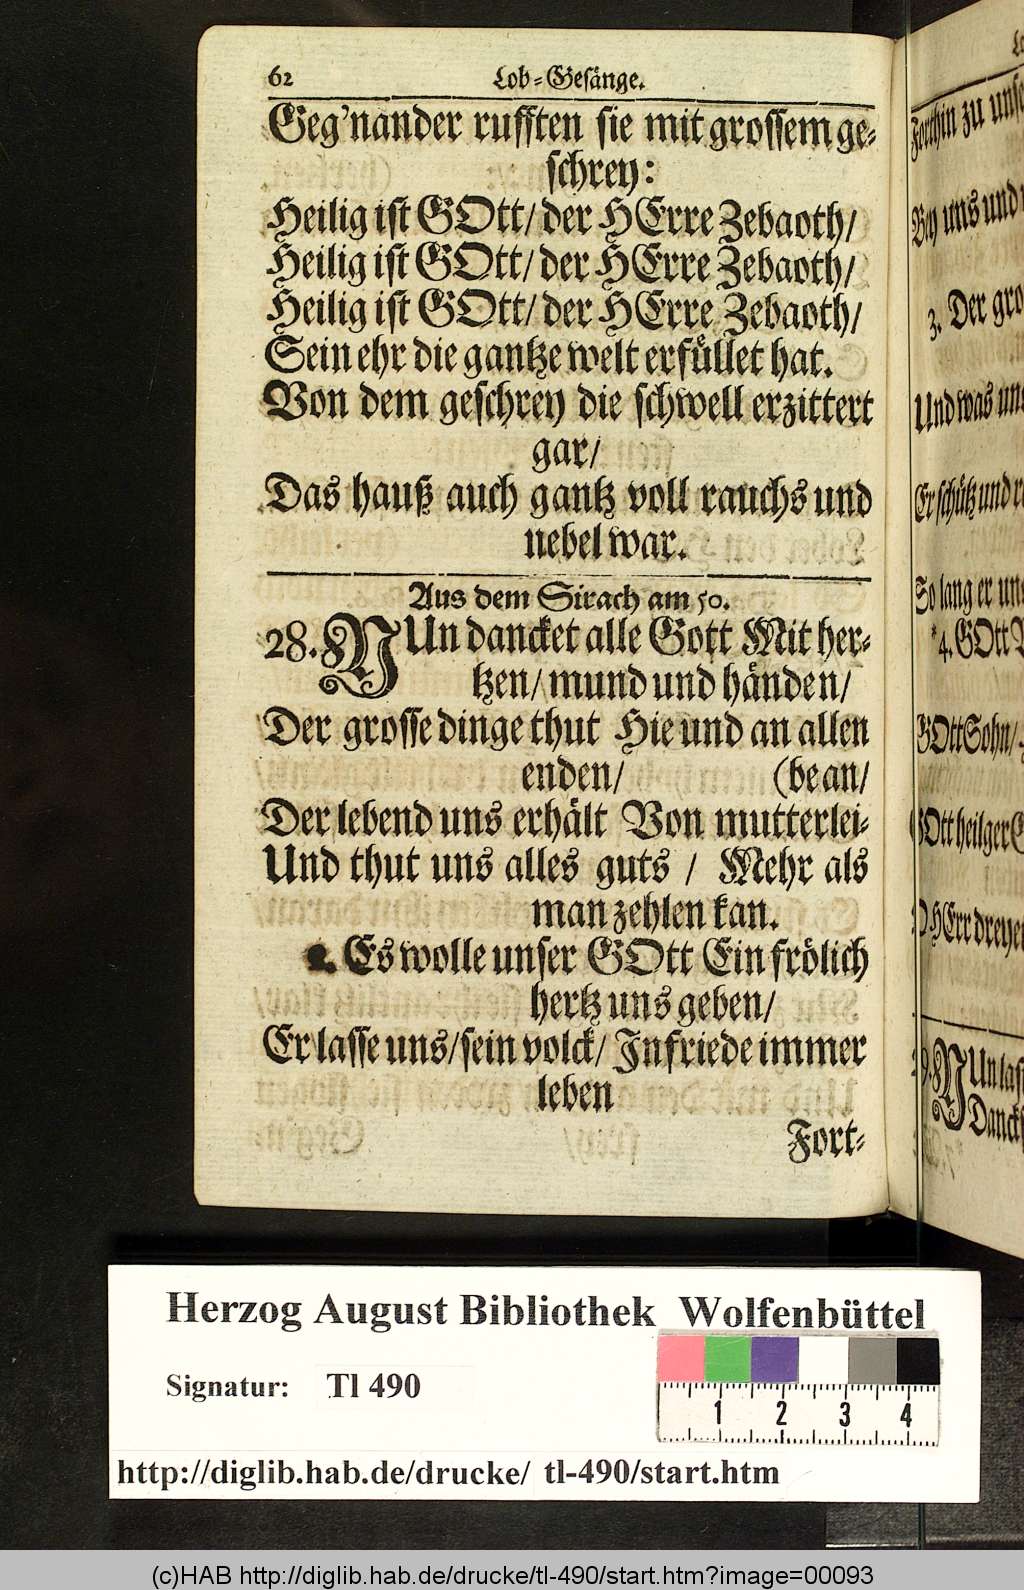 62
Lob-Gesänge.
Geg'nander rufften sie mit grossem ge-
schrey:
Heilig ist GOtt/ der HErre Zebaoth/
Heilig ist GOtt/ der HErre Zebaoth/
Heilig ist GOtt/ der HErre Zebaoth/
Sein ehr die gantze welt erfüllet hat.
Von dem geschrey die schwell erzittert
gar/
Das hauß auch gantz voll rauchs und
nebel war.
Aus dem Sirach am 50.
28. NUn dancket alle Gott Mit her-
tzen/ mund und händen/
Der grosse dinge thut Hie und an allen
enden/ (be an/
Der lebend uns erhält Von mutterlei-
Und thut uns alles guts / Mehr als
man zehlen kan.
2. Es wolle unser GOtt Ein frölich
hertz uns geben/
Er lasse uns/ sein volck/ In friede immer
leben
Fort-
Forthin zu
Bey uns und
3. Der
Und was
Er schütz und
So lang er
*4. GOtt
GOtt Sohn/
GOtt heilger
HErr
NUn
Herzog August Bibliothek Wolfenbüttel
Signatur: Tl 490
1 2 3 4
http://diglib.hab.de/drucke/ tl-490/start.htm
(c)HAB http://diglib.hab.de/drucke/tl-490/start.htm?image=00093